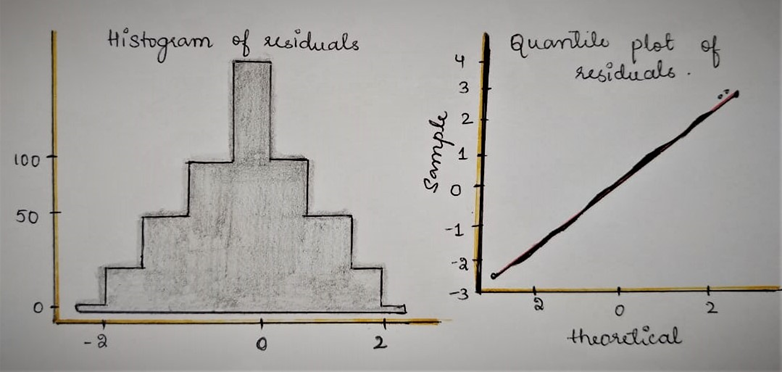 Histogram of residuals
100
50
0
-2
0
2
Quantile plot of
residuals.
Sample
4
3
2
1
0
-1
-2
-3
2
0
2
theoretical